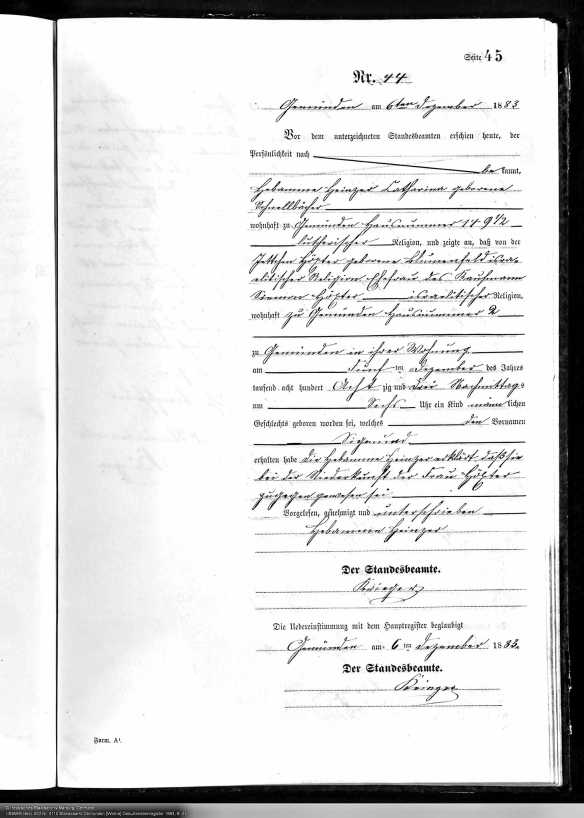 Seite 45
Nr. 44
Gemünden am 6ten Dezember 1883
Vor dem unterzeichneten Standesbeamten erschien heute, der
Persönlichkeit nach
be kannt,
Hebamme Heinzer Catharina geborene
Schnellbächer
wohnhaft zu Gemünden Hausnummer 149 1/2
lutherischer Religion, und zeigte an, daß von der
Jettchen Höxter geborene Blumenfeld isra-
elitischer Religion Ehefrau des Kaufmann
Höxter israelitischer Religion,
wohnhaft zu Gemünden Hausnummer 2
zu Gemünden in ihrer Wohnung
am Fünf ten Dezember des Jahres
tausend acht hundert Acht zig und Drei Nachmittags
um Sechs Uhr ein Kind männ lichen
Geschlechts geboren worden sei, welches den Vornamen
Sigmund
erhalten habe die Hebamme Heinzer erklärt daß sie
bei der Niederkunft der Frau Höxter
zugegen gewesen sei
Vorgelesen, genehmigt und unterschrieben
Hebamme Heinzer
Der Standesbeamte.
Krieger
Die Uebereinstimmung mit dem Hauptregister beglaubigt
Gemünden am 6 ten Dezember 1883.
Der Standesbeamte.
Krieger
Form. A¹.